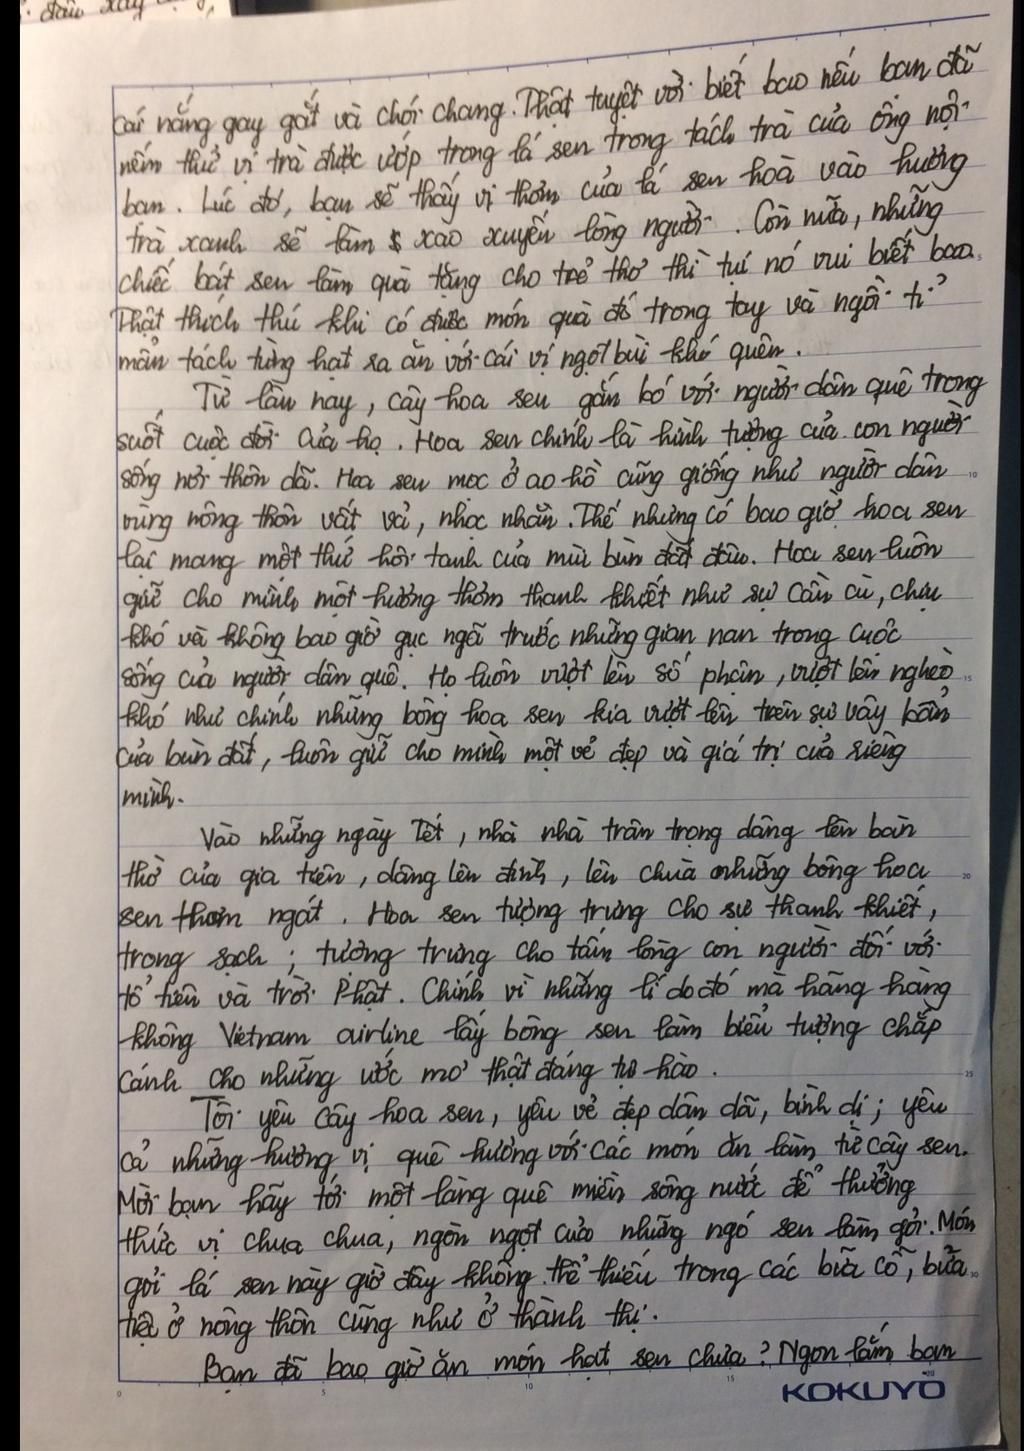 đâu xay
cái nắng gay gắt và chói chang. Thật tuyệt vời biết bao nếu bạn đã
nếm thử vị trà được ướp trong lá sen trong tách trà của ông nội
bạn. Lúc đó, bạn sẽ thấy vị thơm của lá sen hoà vào hương
trà xanh sẽ làm xao xuyến lòng người. Còn nữa, những
chiếc bát sen làm quà tặng cho trẻ thơ thì tụi nó vui biết bao.
Thật thích thú khi có được món quà đó trong tay và ngồi tỉ
mẩn tách từng hạt ra ăn với cái vị ngọt bùi khó quên.
Từ lâu nay, cây hoa sen gắn bó với người dân quê trong
suốt cuộc đời của họ. Hoa sen chính là hình tượng của con người
sống nơi thôn dã. Hoa sen mọc ở ao hồ cũng giống như người dân
vùng nông thôn vất vả, nhọc nhằn. Thế nhưng có bao giờ hoa sen
lại mang một thứ hôi tanh của mùi bùn đất đâu. Hoa sen luôn
giữ cho mình một hương thơm thanh khiết như sự cần cù, chịu
khó và không bao giờ gục ngã trước những gian nan trong cuộc
sống của người dân quê. Họ luôn vượt lên số phận, vượt lên nghèo
khó như chính những bông hoa sen kia vượt lên trên sự vây bẩn
của bùn đất, luôn giữ cho mình một vẻ đẹp và giá trị của riêng
mình.
Vào những ngày Tết, nhà nhà trân trọng dâng lên bàn
thờ của gia tiên, dâng lên đình, lên chùa những bông hoa
sen thơm ngát. Hoa sen tượng trưng cho sự thanh khiết,
trong sạch; tượng trưng cho tấm lòng con người đối với
tổ tiên và trời Phật. Chính vì những lí do đó mà hãng hàng
không Vietnam airline lấy bông sen làm biểu tượng chắp
cánh cho những ước mơ thật đáng tự hào.
Tôi yêu cây hoa sen, yêu vẻ đẹp dân dã, bình dị; yêu
cả những hương vị quê hương với các món ăn làm từ cây sen.
Mời bạn hãy tới một làng quê miền sông nước để thưởng
thức vị chua chua, ngòn ngọt của những ngó sen làm gỏi. Món
gỏi lá sen này giờ đây không thể thiếu trong các bữa cỗ, bữa
tiệc ở nông thôn cũng như ở thành thị.
Bạn đã bao giờ ăn món hạt sen chưa? Ngon lắm bạn
0 5 10 15 20
KOKUYO